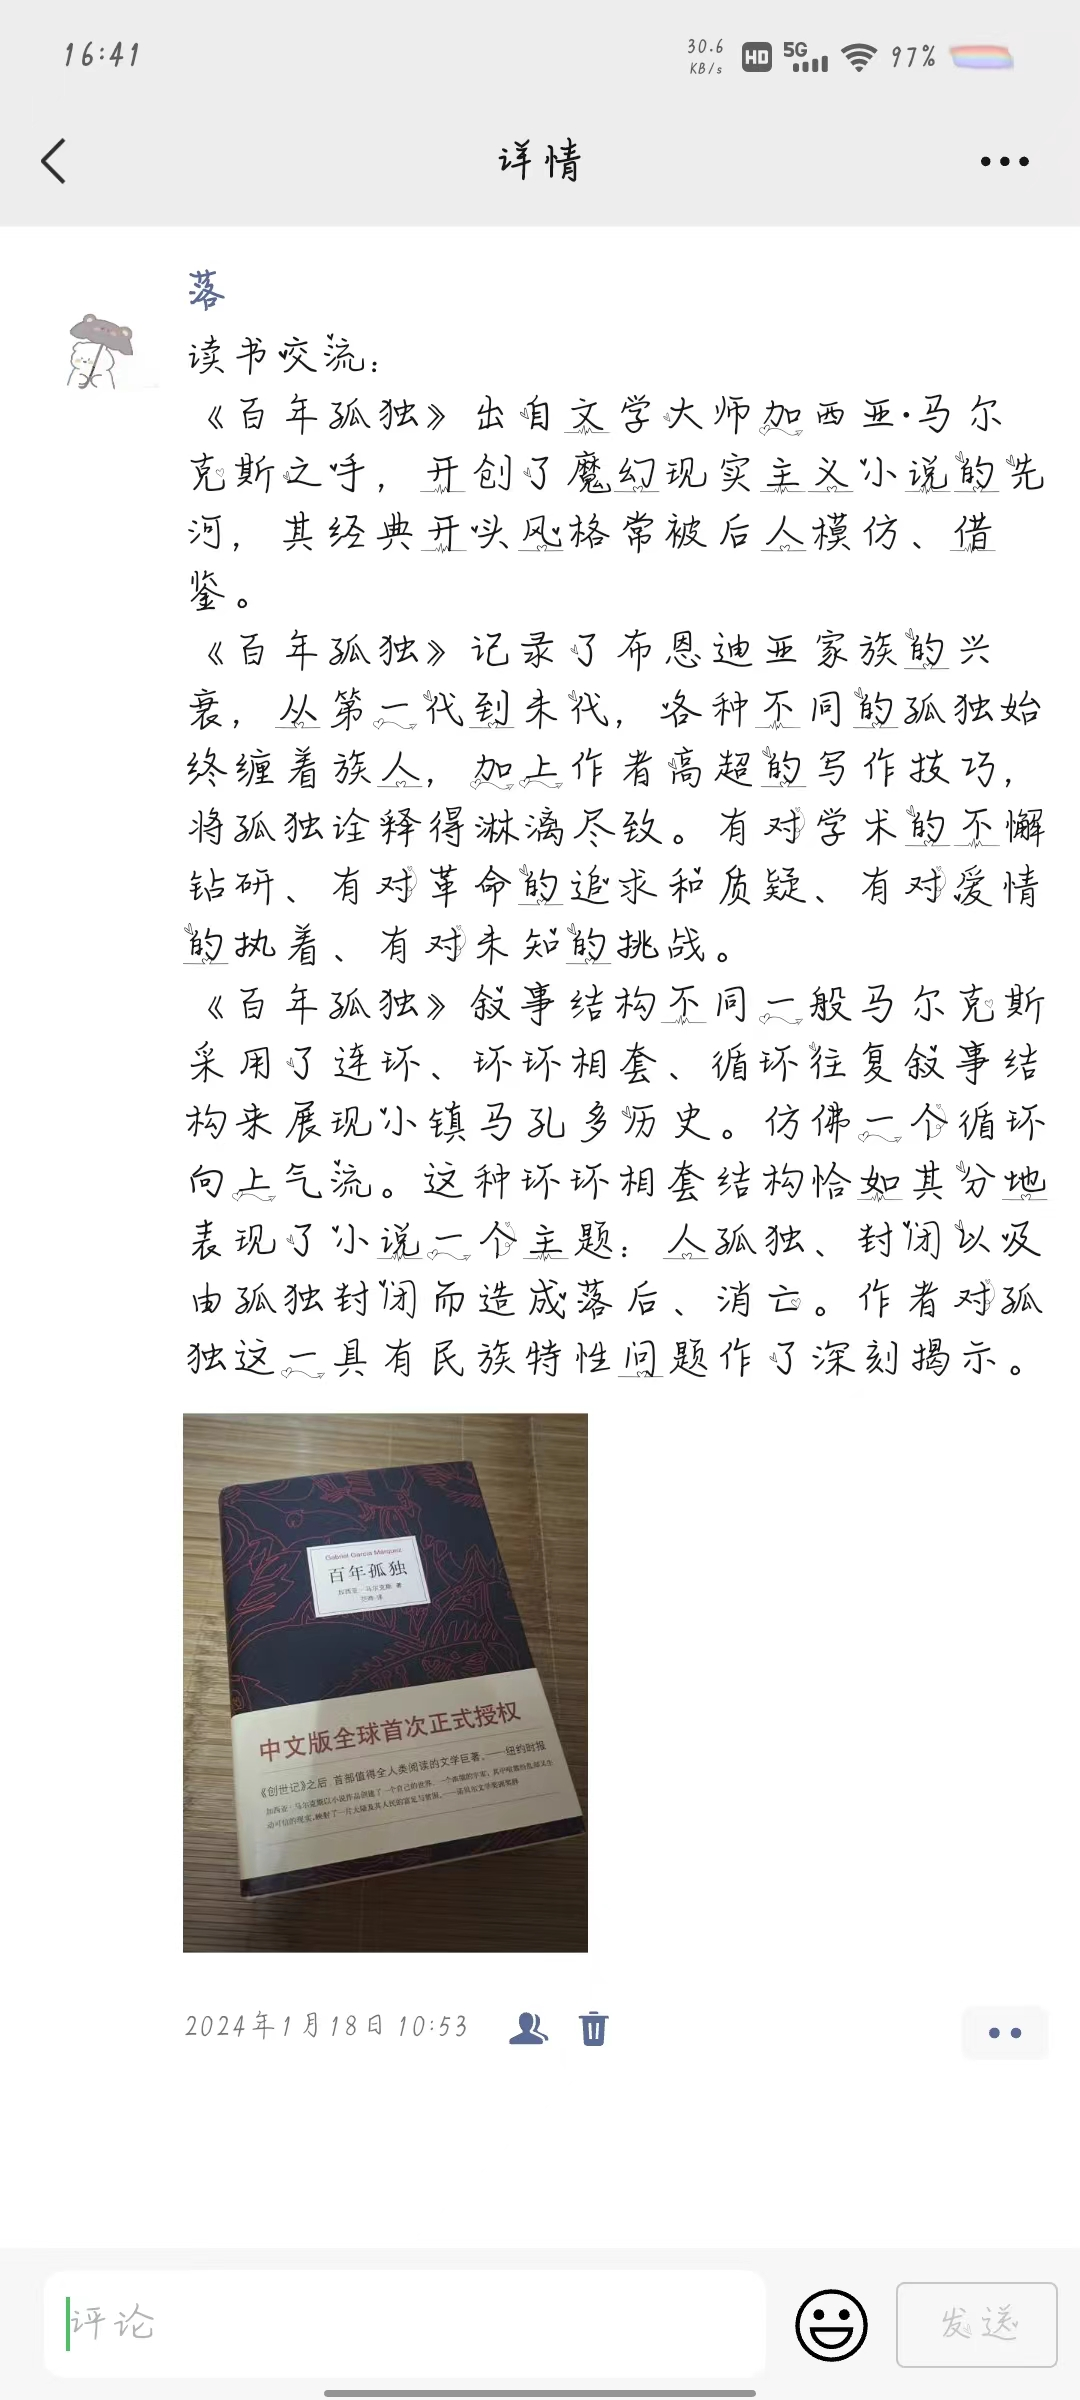 16:41
30.6
KB/s
HD
5G
97%
详情
落
读书交流：
《百年孤独》出自文学大师加西亚·马尔
克斯之手，开创了魔幻现实主义小说的先
河，其经典开头风格常被后人模仿、借
鉴。
《百年孤独》记录了布恩迪亚家族的兴
衰，从第一代到末代，各种不同的孤独始
终缠着族人，加上作者高超的写作技巧，
将孤独诠释得淋漓尽致。有对学术的不懈
钻研、有对革命的追求和质疑、有对爱情
的执着、有对未知的挑战。
《百年孤独》叙事结构不同一般马尔克斯
采用了连环、环环相套、循环往复叙事结
构来展现小镇马孔多历史。仿佛一个循环
向上气流。这种环环相套结构恰如其分地
表现了小说一个主题：人孤独、封闭以及
由孤独封闭而造成落后、消亡。作者对孤
独这一具有民族特性问题作了深刻揭示。
Gabriel García Márquez
百年孤独
加西亚·马尔克斯 著
范晔 译
中文版全球首次正式授权
《创世记》之后，首部值得全人类阅读的文学巨著。——纽约时报
加西亚·马尔克斯以小说作品创建了一个自己的世界，一个浓缩的宇宙，其中喧嚣纷乱却又生
动可信的现实，映射了一片大陆及其人民的富足与贫困。——诺贝尔文学奖颁奖辞
2024年1月18日 10:53
评论
发送